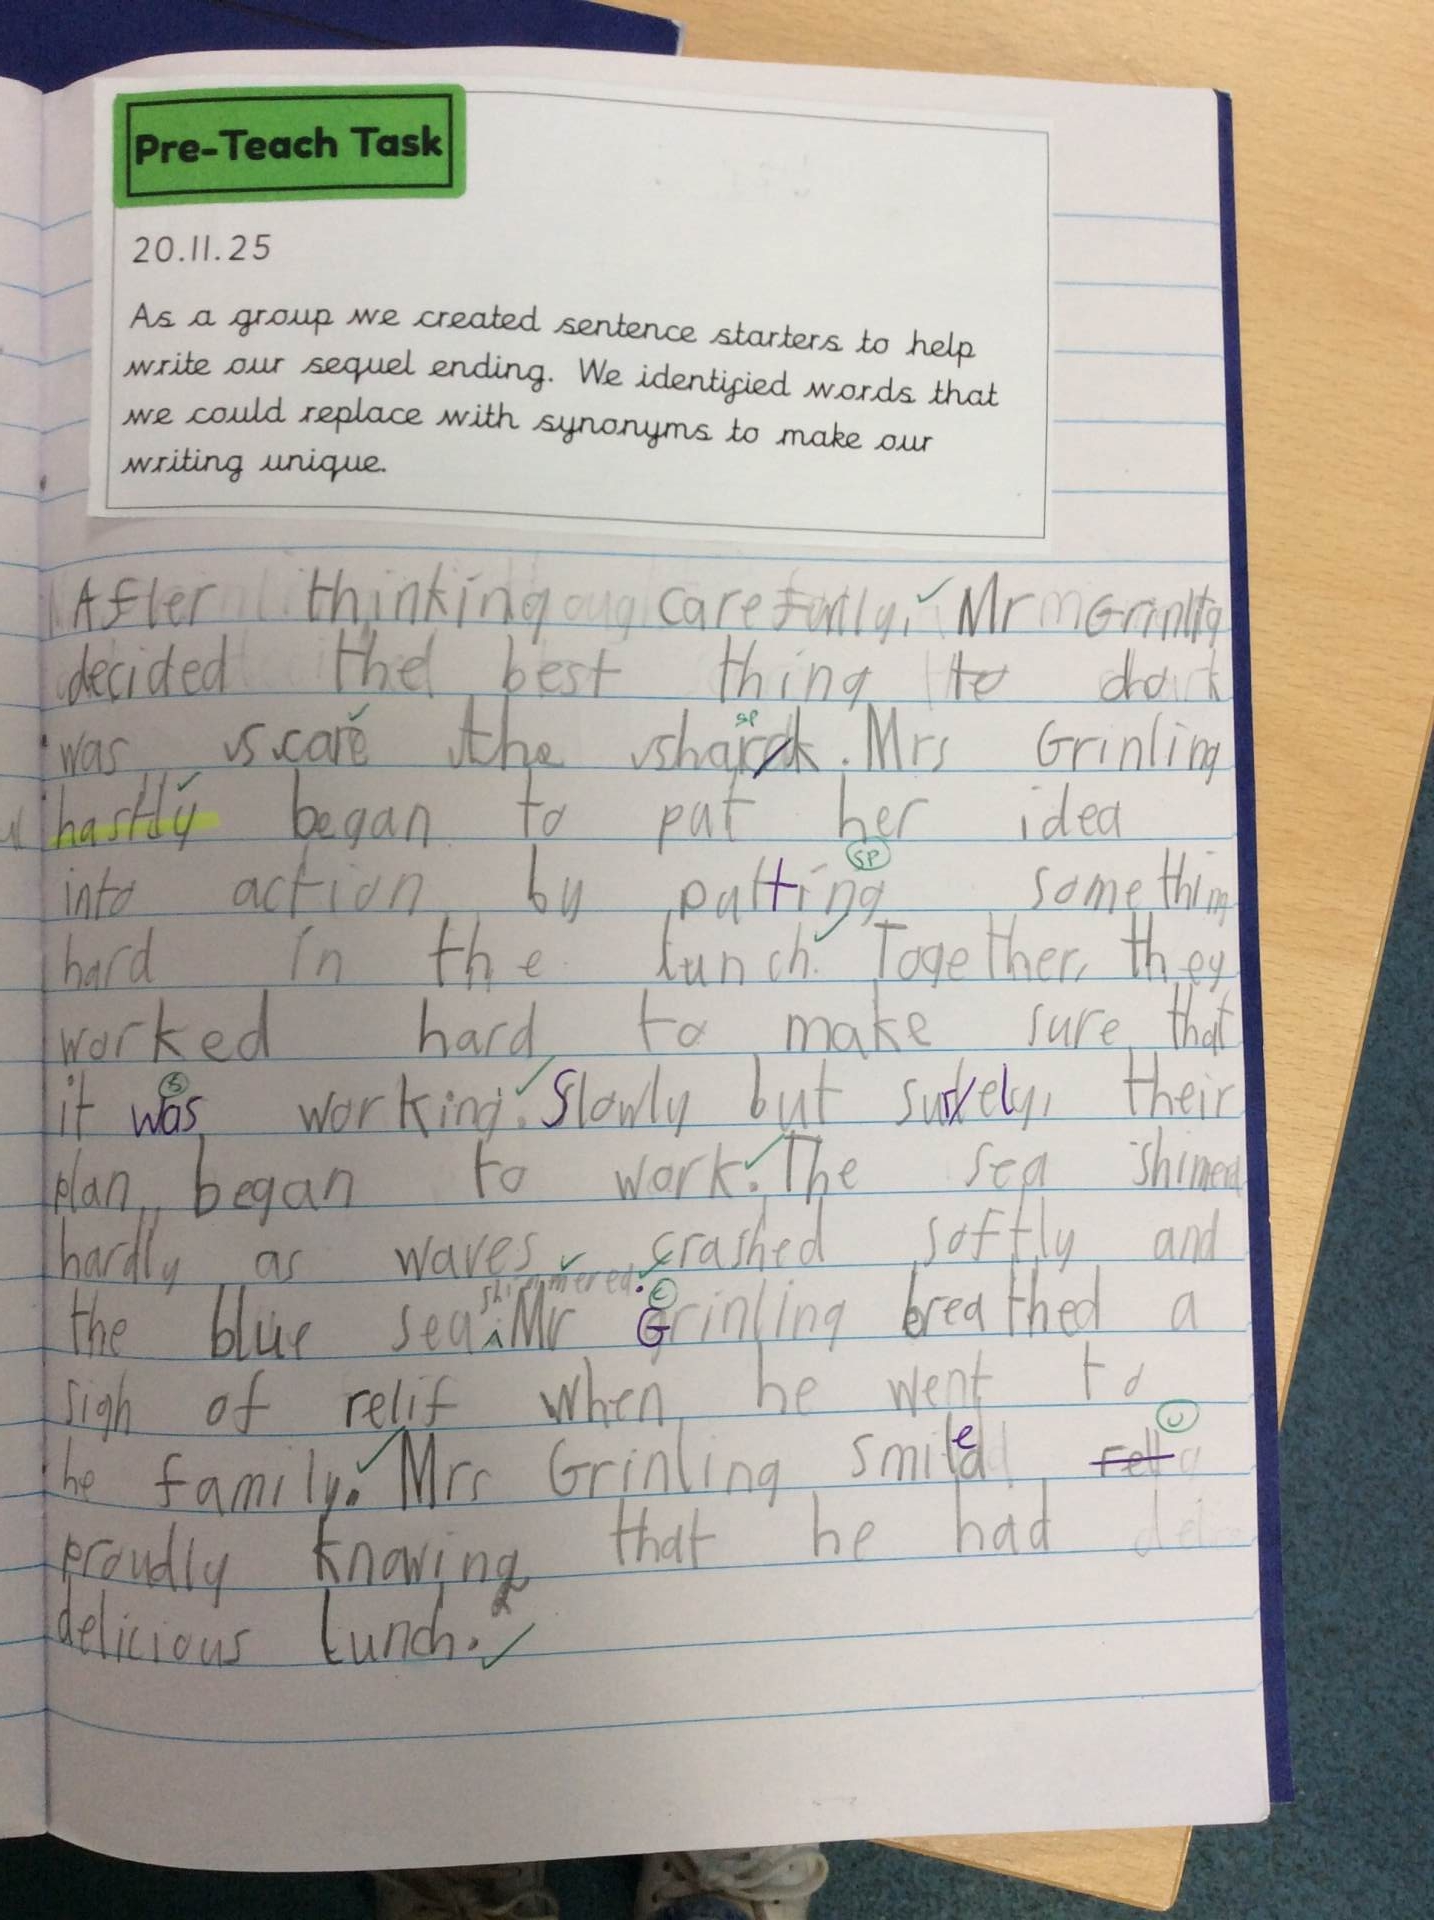 Pre-Teach Task
20.11.25
As a group we created sentence starters to help
write our sequel ending. We identified words that
we could replace with synonyms to make our
writing unique.
After thinking carefully, Mr Grinling
decided the best thing to do
sp
was scare the shark. Mrs Grinling
hastly began to put her idea
sp
into action by putting somethin
hard in the lunch. Together, they
worked hard to make sure that
s
it was working. Slowly but surely, their
plan began to work. The sea shimerd
hardly as waves crashed softly and
shimmered.
c
the blue sea Mr Grinling breathed a
sigh of relif when he went to
he family. Mrs Grinling smiled
proudly knowing that he had
delicious lunch.